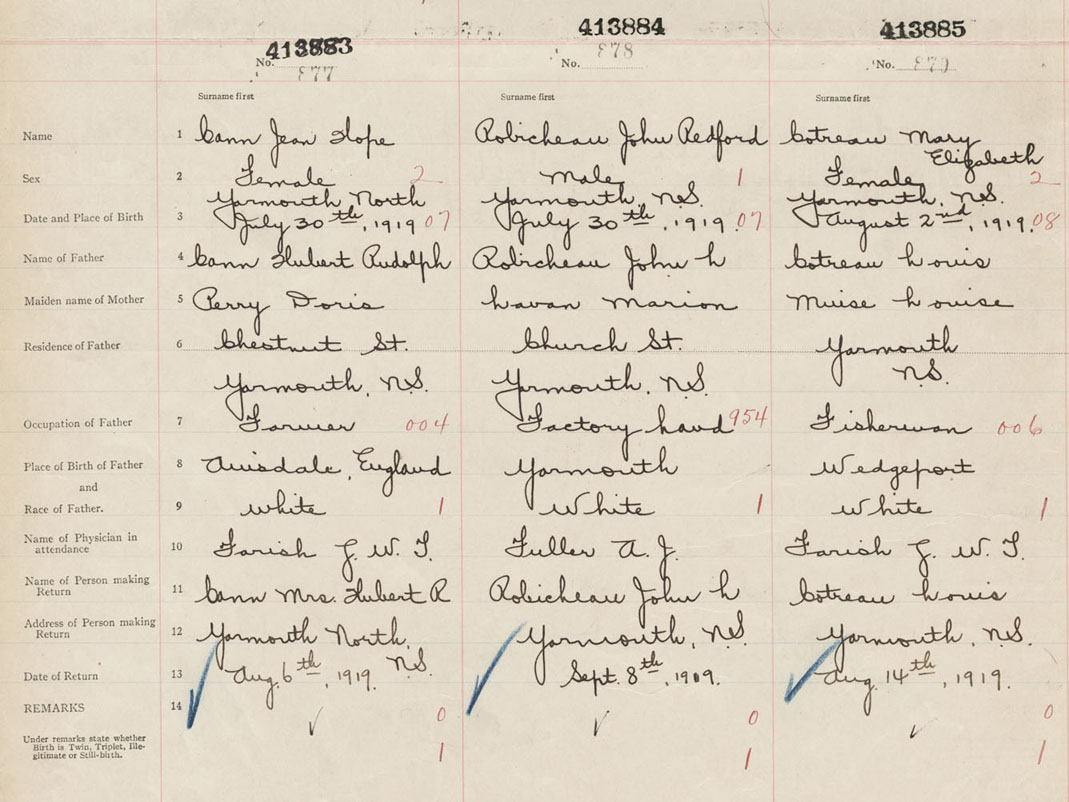 413883 413884 413885
No. 877 No. 878 No. 879
Surname first Surname first Surname first
Name 1 Cann Jean Hope Robicheau John Redford Cotreau Mary
Elizabeth
Sex 2 Female 2 Male 1 Female 2
Yarmouth North Yarmouth, N.S. Yarmouth, N.S.
Date and Place of Birth 3 July 30th, 1919 07 July 30th, 1919. 07 August 2nd, 1919. 08
Name of Father 4 Cann Hubert Rudolph Robicheau John L Cotreau Louis
Maiden name of Mother 5 Perry Doris Lavan Marion Muise Louise
Residence of Father 6 Chestnut St. Church St. Yarmouth
Yarmouth, N.S. Yarmouth, N.S. N.S.
Occupation of Father 7 Farmer 004 Factory hand 954 Fisherman 006
Place of Birth of Father 8 Ainsdale, England Yarmouth Wedgeport
and
Race of Father. 9 White 1 White 1 White 1
Name of Physician in
attendance 10 Farish G. W. T. Fuller A. J. Farish G. W. T.
Name of Person making
Return 11 Cann Mrs. Hubert R Robicheau John L Cotreau Louis
Address of Person making
Return 12 Yarmouth North, Yarmouth, N.S. Yarmouth, N.S.
N.S.
Date of Return 13 Aug. 6th, 1919. Sept. 8th, 1909. Aug. 14th, 1919.
REMARKS 14 0 0 0
Under remarks state whether
Birth is Twin, Triplet, Ille-
gitimate or Still-birth. 1 1 1